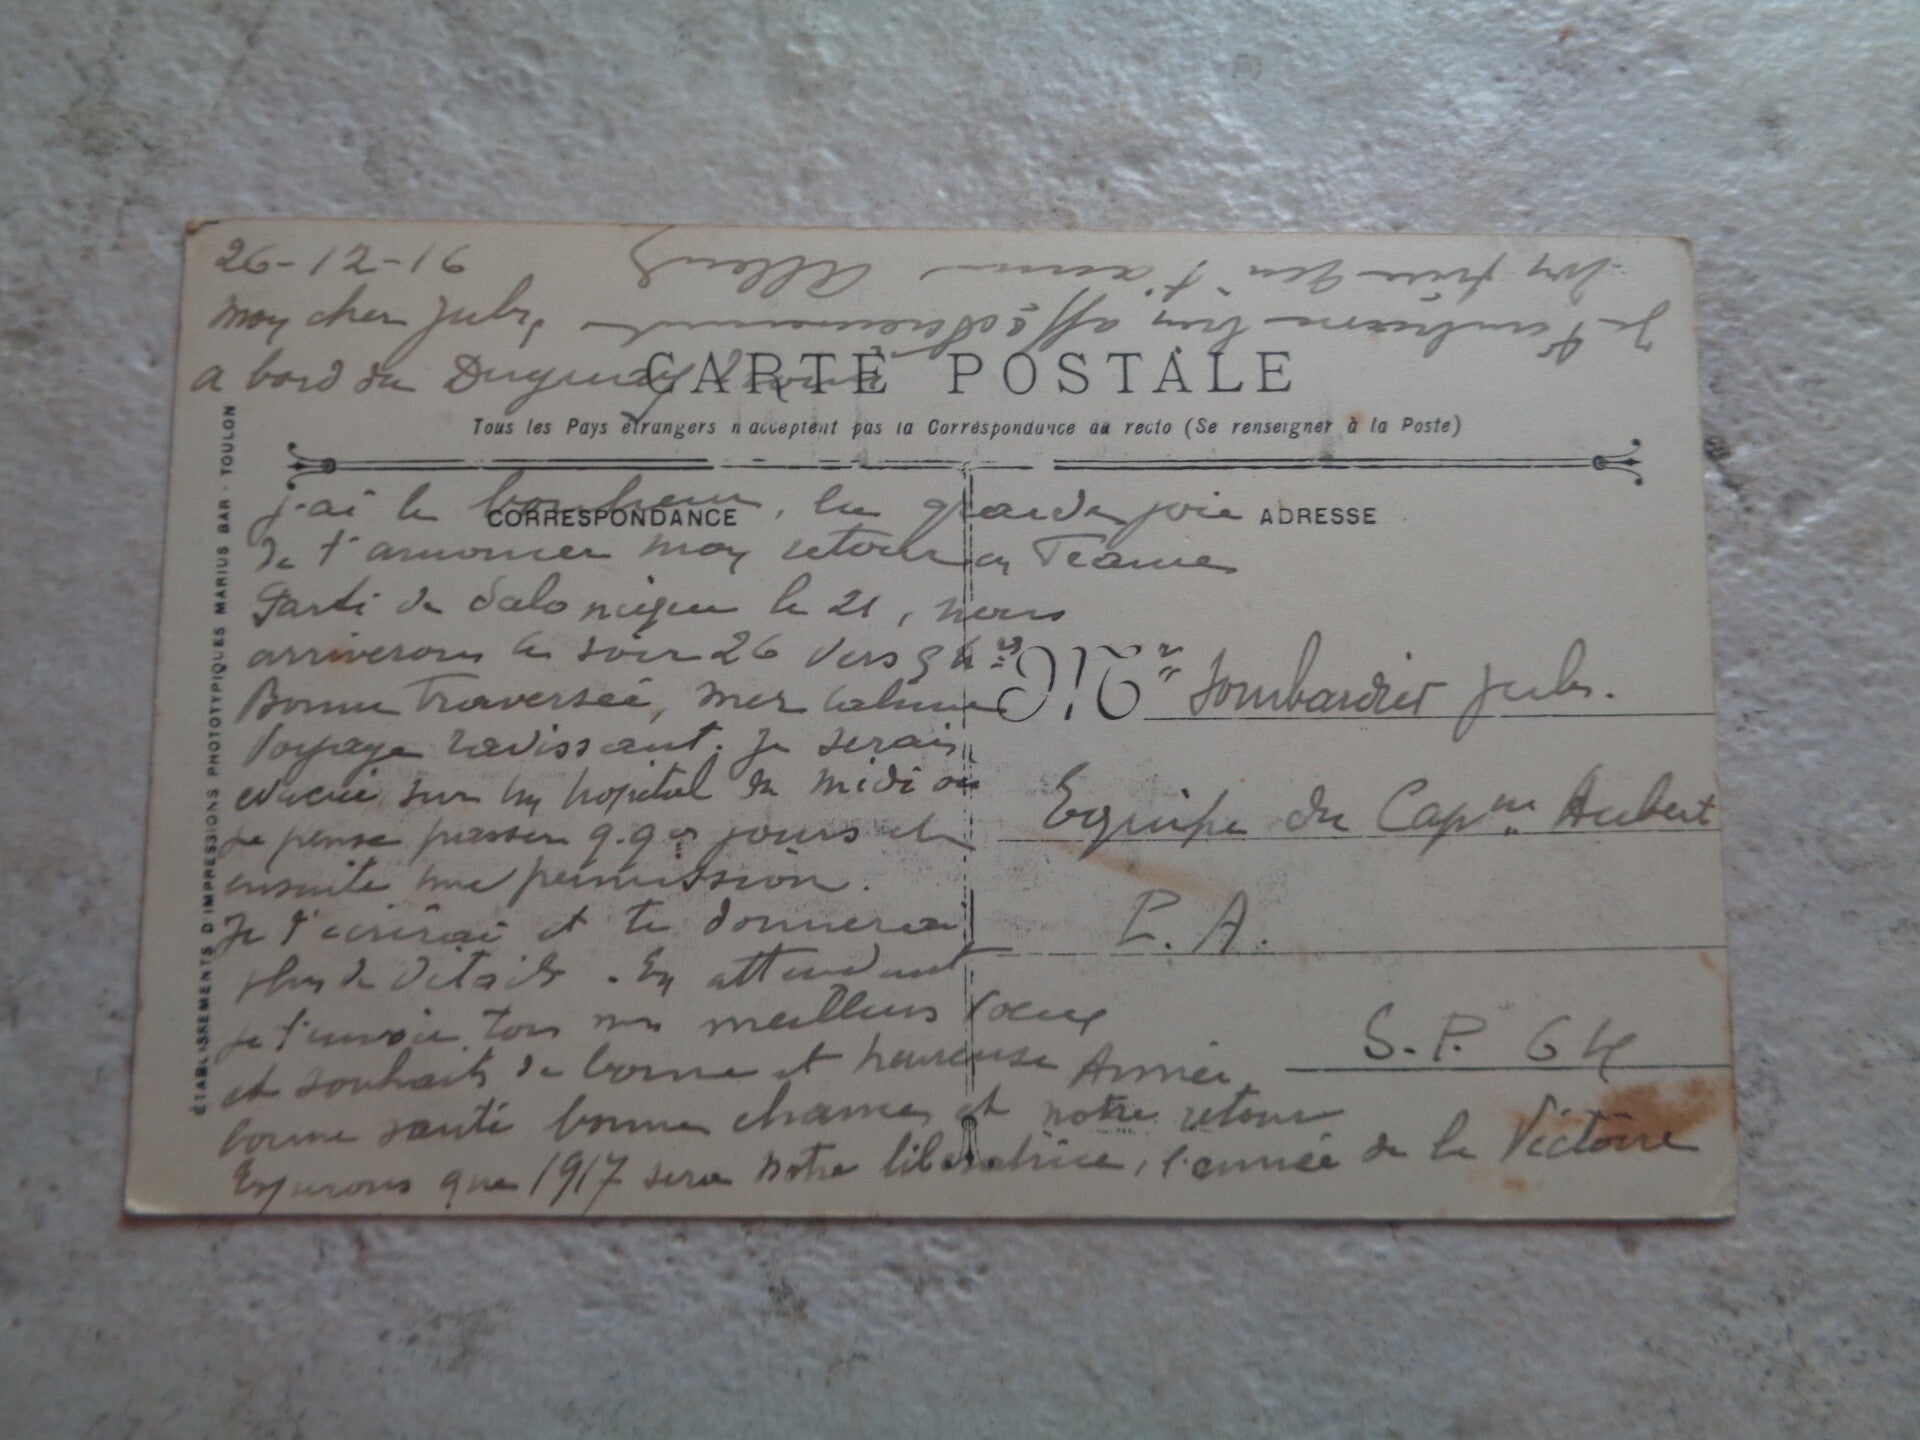 26-12-16
Mon cher Jules,
A bord du Duguay Trouin
CARTE POSTALE
Tous les Pays étrangers n'acceptent pas la Correspondance au recto (Se renseigner à la Poste)
CORRESPONDANCE
ADRESSE
j'ai le bonheur, la grande joie
de t'annoncer mon retour en France
Parti de Salonique le 21, nous
arriverons le soir 26 vers 3 h
Bonne traversée, mer calme
Voyage ravissant. Je serai
évacué sur un hopital du midi où
je pense passer q.q. jours et
ensuite une permission.
Je t'écrirai et te donnerai
plus de détails. En attendant
je t'envoie tous mes meilleurs vœux
et souhaits de bonne et heureuse Année
bonne santé bonne chance et notre retour
Espérons que 1917 sera notre libératrice, l'année de la Victoire
Je t'embrasse bien affectueusement
Ton frère qui t'aime
M
Lombardier Jules.
Equipe du Capne Aubert
P. A.
S. P. 64
ÉTABLISSEMENTS D'IMPRESSIONS PHOTOTYPIQUES MARIUS BAR - TOULON